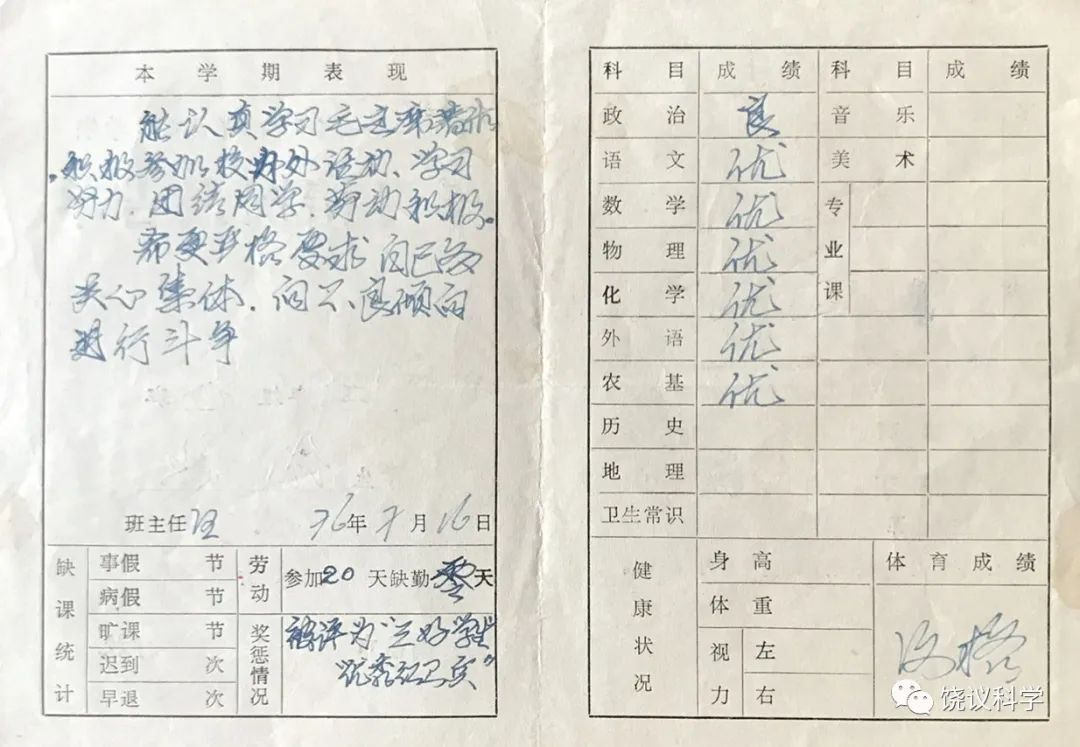 本学期表现
能认真学习毛主席著作
积极参加校办外活动、学习
努力.团结同学.劳动积极。
希更严格要求自己多
关心集体.向不良倾向
进行斗争
班主任 76年7月16日
缺课统计
事假 节
病假 节
旷课 节
迟到 次
早退 次
劳动 参加20天缺勤零天
奖惩情况
被评为“三好学生”
“优秀红卫兵”
科目 成绩 科目 成绩
政治 良 音乐
语文 优 美术
数学 优 专业课
物理 优
化学 优
外语 优
农基 优
历史
地理
卫生常识
健康状况
身高
体重
视力 左
右
体育成绩
及格
饶议科学